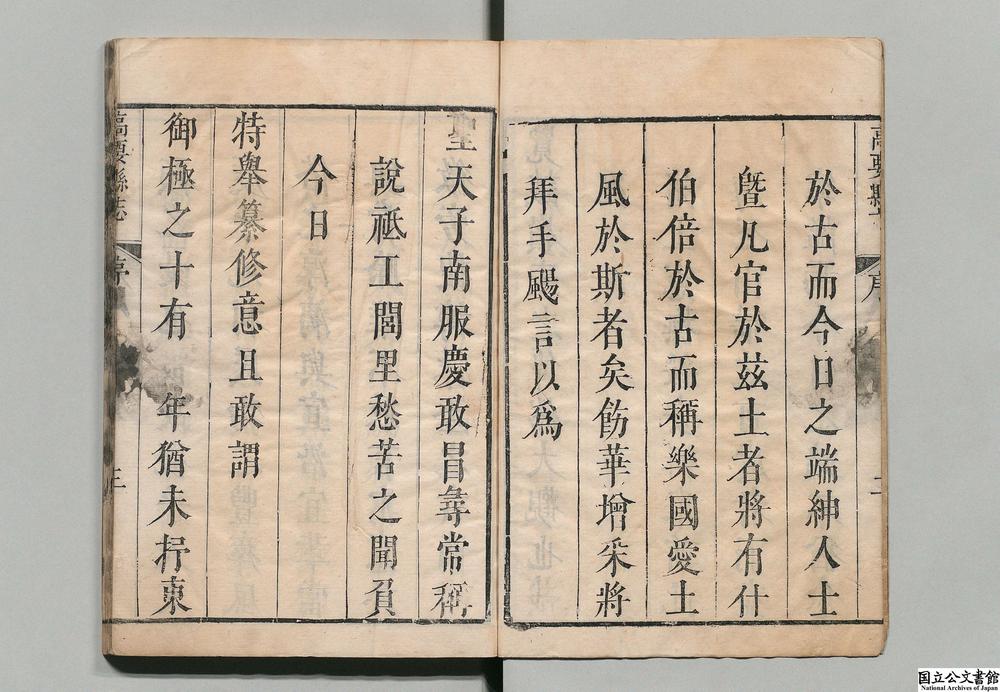 高要縣
序
於古而今日之端紳人士
曁凡官於茲土者將有什
伯倍於古而稱樂國愛土
風於斯者矣飭華增采將
拜手颺言以爲
聖天子南服慶敢冒尋常稱
說祗工閭里愁苦之聞負
今日
特舉纂修意且敢謂
御極之十有 年猶未抒東
高要縣志
序
国立公文書館
National Archives of Japan